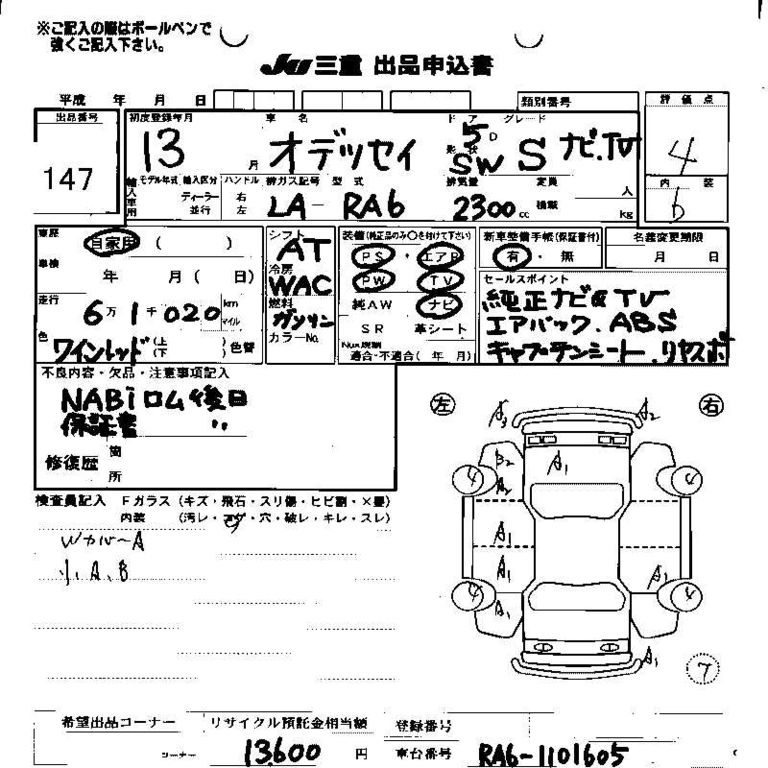 ※ご記入の際はボールペンで
強くご記入下さい。
JU三重 出品申込書
平成 年 月 日
類別番号
評価点
出品番号
初度登録年月
車名
ドア グレード
147
13 月
オデッセイ
5D
形状
SW S ナビ.TV
4
輸入車用
モデル年式 輸入区分
ハンドル 排ガス記号 型式
排気量
定員
人
内装
ディーラー
並行
右
左
LA-RA6
2300cc
積載
kg
b
車歴
自家用 ( )
シフト
AT
装備(純正品のみ○を付けて下さい)
新車整備手帳(保証書付)
名義変更期限
PS・エアB
有・無
月 日
車検
年 月 ( 日)
冷房
WAC
PW TV
セールスポイント
走行
6万1千020km
マイル
燃料
ガソリン
純AW ナビ
純正ナビ&TV
エアバック.ABS
色
ワインレッド (上)(下) 色替
カラーNo.
SR 革シート
Nox規制
適合・不適合( 年 月)
キャプテンシート.リヤスポ
不良内容・欠品・注意事項記入
NABiロム後日
保証書 〃
修復歴
箇
所
左
右
A3 A2
B2 A1
4 A2 4
A1
A1 A1
4 4
A1
A1
7
検査員記入 Fガラス(キズ・飛石・スリ傷・ヒビ割・×畳)
内装 (汚レ・コゲ・穴・破レ・キレ・スレ)
A、B
希望出品コーナー
コーナー
リサイクル預託金相当額
13,600 円
登録番号
車台番号 RA6-1101605